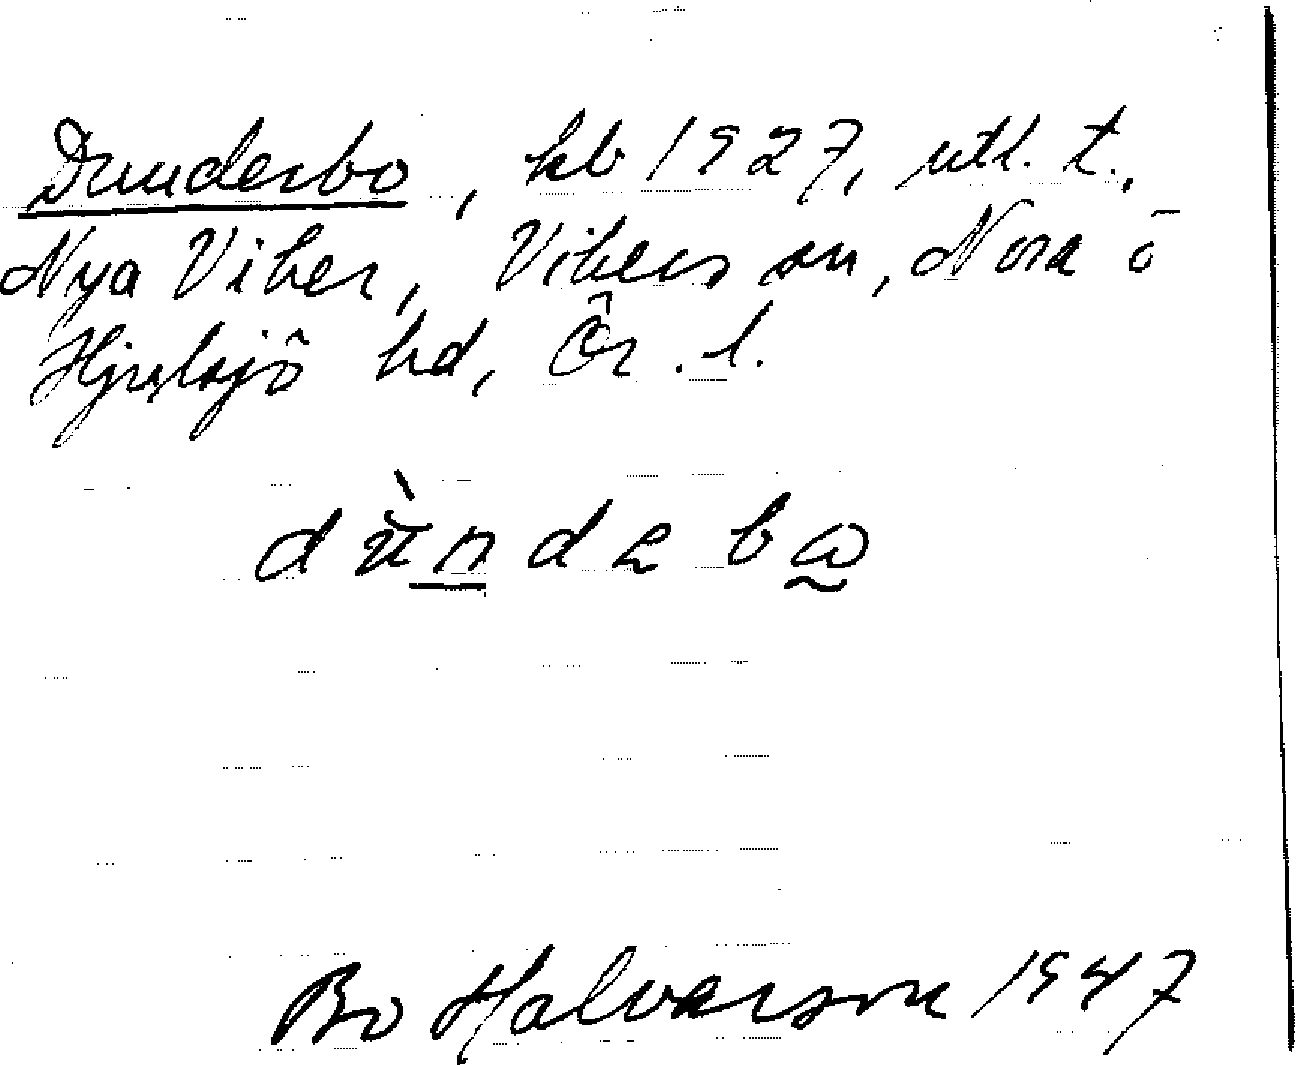 Dunderbo, kb 1927, utl. t.,
Nya Viker, Vikers sn, Nora o
Hjulsjö hd, Ör. l.
dùndebω
Bo Halvarson 1947